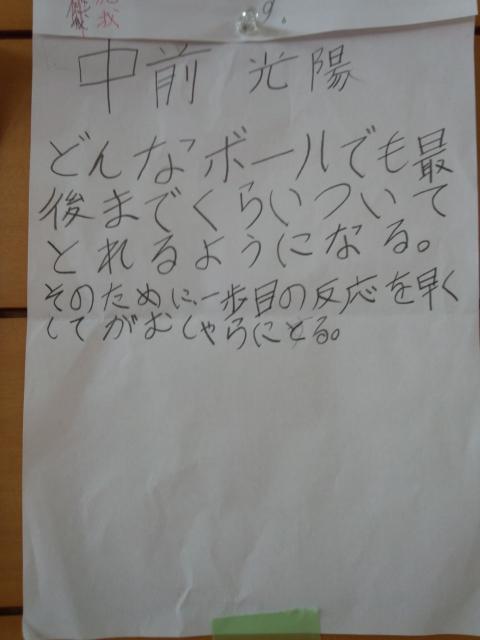 9.
中前 光陽
どんなボールでも最
後までくらいついて
とれるようになる。
そのために、一歩目の反応を早く
してがむしゃらにとる。